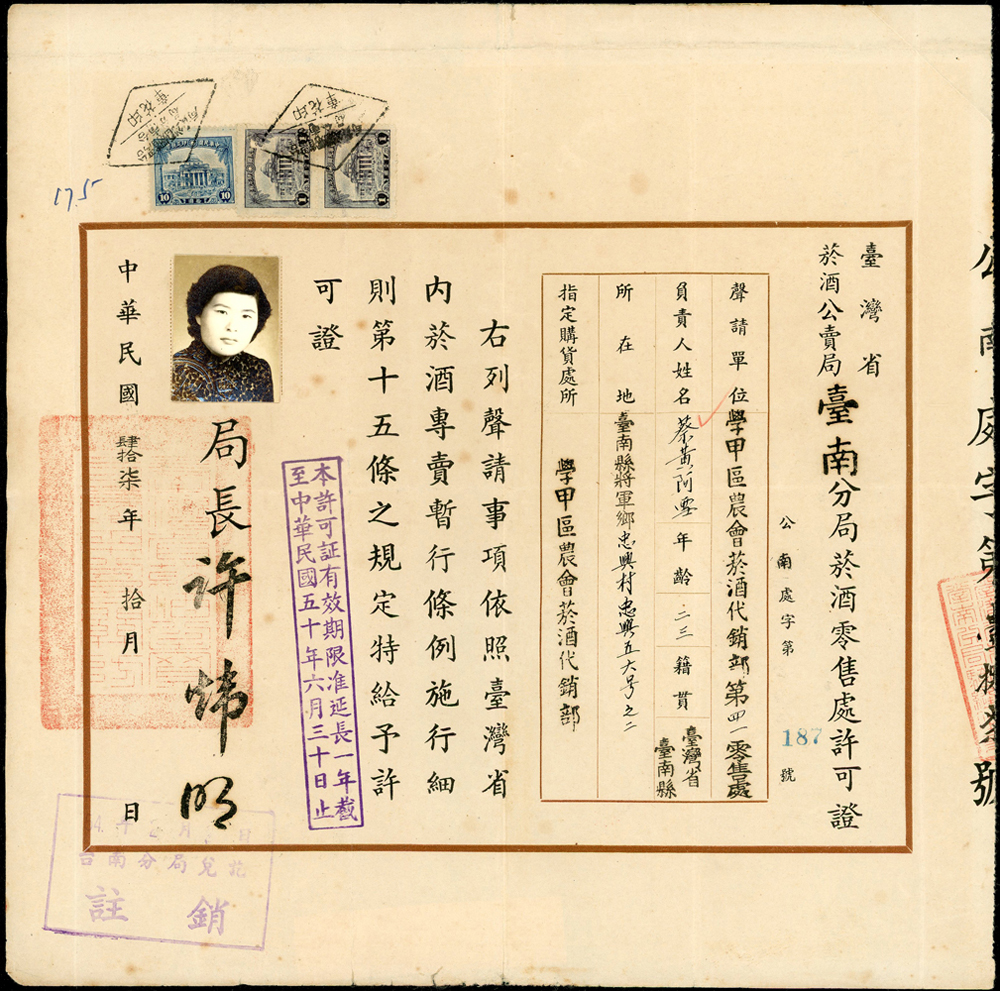 臺灣省
菸酒公賣局臺南分局菸酒零售處許可證
公南處字第187號
聲請單位 學甲區農會菸酒代銷部第四一零售處
負責人姓名 蔡黃阿雪 年齡 二三 籍貫 臺灣省臺南縣
所在地 臺南縣將軍鄉忠興村忠興五六号之二
指定購貨處所 學甲區農會菸酒代銷部
右列聲請事項依照臺灣省
內菸酒專賣暫行條例施行細
則第十五條之規定特給予許
可證
本許可証有效期限准延長一年截
至中華民國五十年六月三十日止
局長許煒明
中華民國肆拾柒年拾月 日
公南處字第壹捌柒號
17.5
10 10
1
1
台南分局
註銷